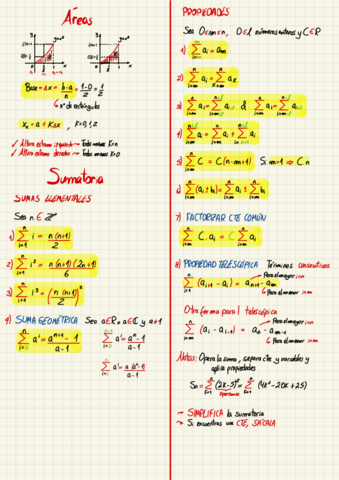 Áreas
Base = Δx = b-a/n = 1-0/2 = 1/2
nº de rectángulos
xₖ = a + KΔx , K=0,1,2
✓ Altura extremo izquierdo → Todos menos K=n
✓ Altura extremo derecho → Todos menos K=0
Sumatoria
SUMAS ELEMENTALES
Sea n ∈ Z⁺
1) Σ i = n(n+1)/2
2) Σ i² = n(n+1)(2n+1)/6
3) Σ i³ = (n(n+1)/2)²
4) SUMA GEOMÉTRICA Sea a∈R ∧ a∈C y a≠1
Σ aⁱ = aⁿ⁺¹ - 1/a-1
PROPIEDADES
Sea 0≤m≤n, 0≤l números enteros y C∈R
1) Σ aᵢ = aₘ
2) Σ aᵢ = Σ aₖ
5) Σ C = C(n-m+1) Si m=1 ⇒ C.n
6) Σ (aᵢ ± bᵢ) = Σ aᵢ ± Σ bᵢ
7) FACTORIZAR CTE COMÚN
Σ C.aᵢ = C Σ aᵢ
8) PROPIEDAD TELESCÓPICA Términos consecutivos
Σ (aᵢ₊₁ - aᵢ) = aₙ₊₁ - aₘ
Para el mayor i=n
Para el menor i=m
Otra forma para l telescópica
Σ (aᵢ - aᵢ₋₁) = aₙ - aₘ₋₁
Para el mayor i=n
Para el menor i=m
Notas: Opera la suma, separa ctes y variables y
aplica propiedades
Sₙ = Σ (2K-5)² = Σ (4K² - 20K + 25)
Operamos
→ SIMPLIFICA la sumatoria
→ Si encuentras una CTE, SÁCALA